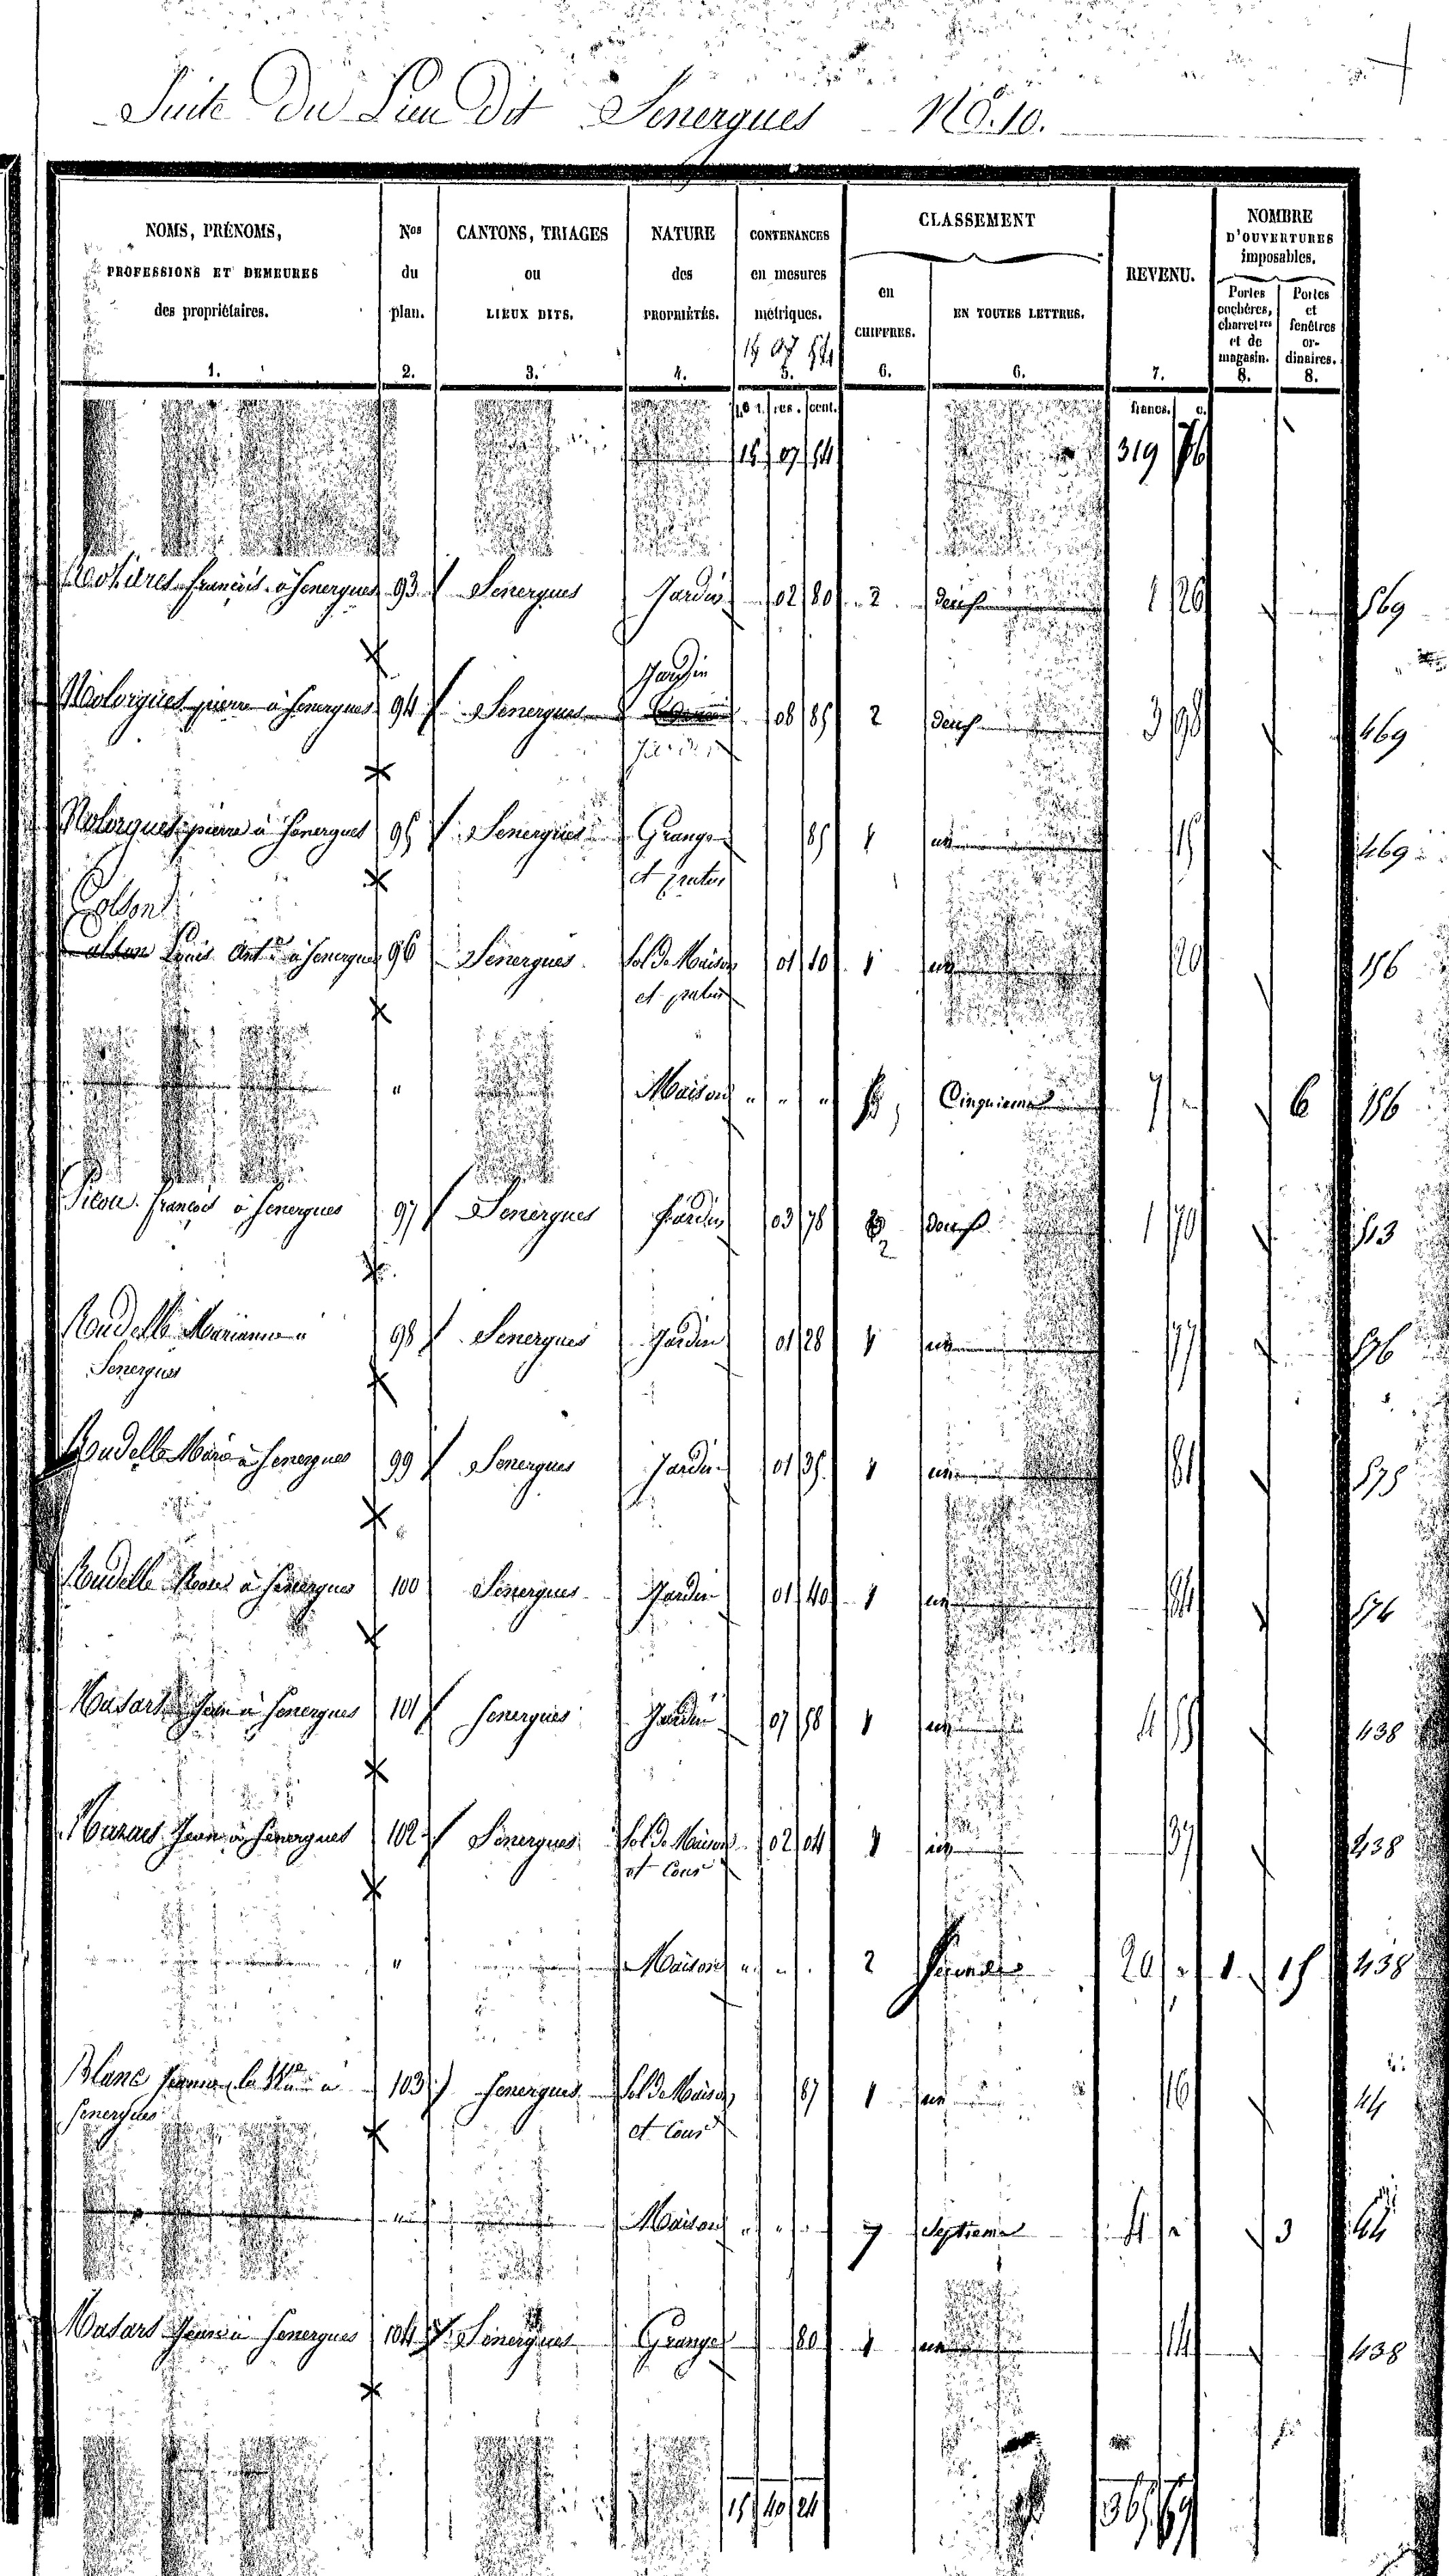 Suite Du Lieu Dit Senergues No. 10.
NOMS, PRÉNOMS,
PROFESSIONS ET DEMEURES
des propriétaires.
1.
Nos
du
plan.
2.
CANTONS, TRIAGES
ou
LIEUX DITS.
3.
NATURE
des
PROPRIÉTÉS.
4.
CONTENANCES
en mesures
métriques.
5.
CLASSEMENT
en
CHIFFRES.
6.
EN TOUTES LETTRES.
6.
REVENU.
7.
NOMBRE
D'OUVERTURES
imposables.
Portes
cochères,
charretres
et de
magasin.
8.
Portes
et
fenêtres
or-
dinaires.
8.
francs. c.
15 07 54 319 76
françois à Senergues 93 Senergues Jardin 02 80 2 deux 1 26 569
Jardin
pierre à Senergues 94 Senergues 08 85 2 deux 3 98 469
Jardin
pierre à Senergues 95 Senergues Grange 85 1 un 15 469
et patus
Colson
Louis Ant.ne à Senergues 96 Senergues Sol de Maison 01 10 1 un 20 156
et patus
" Maison " " " 5 Cinquieme 7 " 6 156
Picou françois à Senergues 97 Senergues Jardin 03 78 2 deux 1 70 513
Roudelle Marianne à 98 Senergues Jardin 01 28 1 un 77 576
Senergues
Roudelle Marie à Senergues 99 Senergues Jardin 01 35 1 un 81 575
Roudelle à Senergues 100 Senergues Jardin 01 40 1 un 84 574
Masars Jean à Senergues 101 Senergues Jardin 07 58 1 un 4 55 438
Mazars Jean à Senergues 102 Senergues Sol de Maison 02 04 1 un 37 438
et Cour
" Maison " " 2 Seconde 20 " 1 15 438
Blanc la Vve à 103 Senergues Sol de Maison 87 1 un 16 44
Senergues
et Cour
" Maison " " 7 Septieme 4 " 3 44
Masars Jean à Senergues 104 Senergues Grange 80 1 un 14 438
15 40 24 365 69